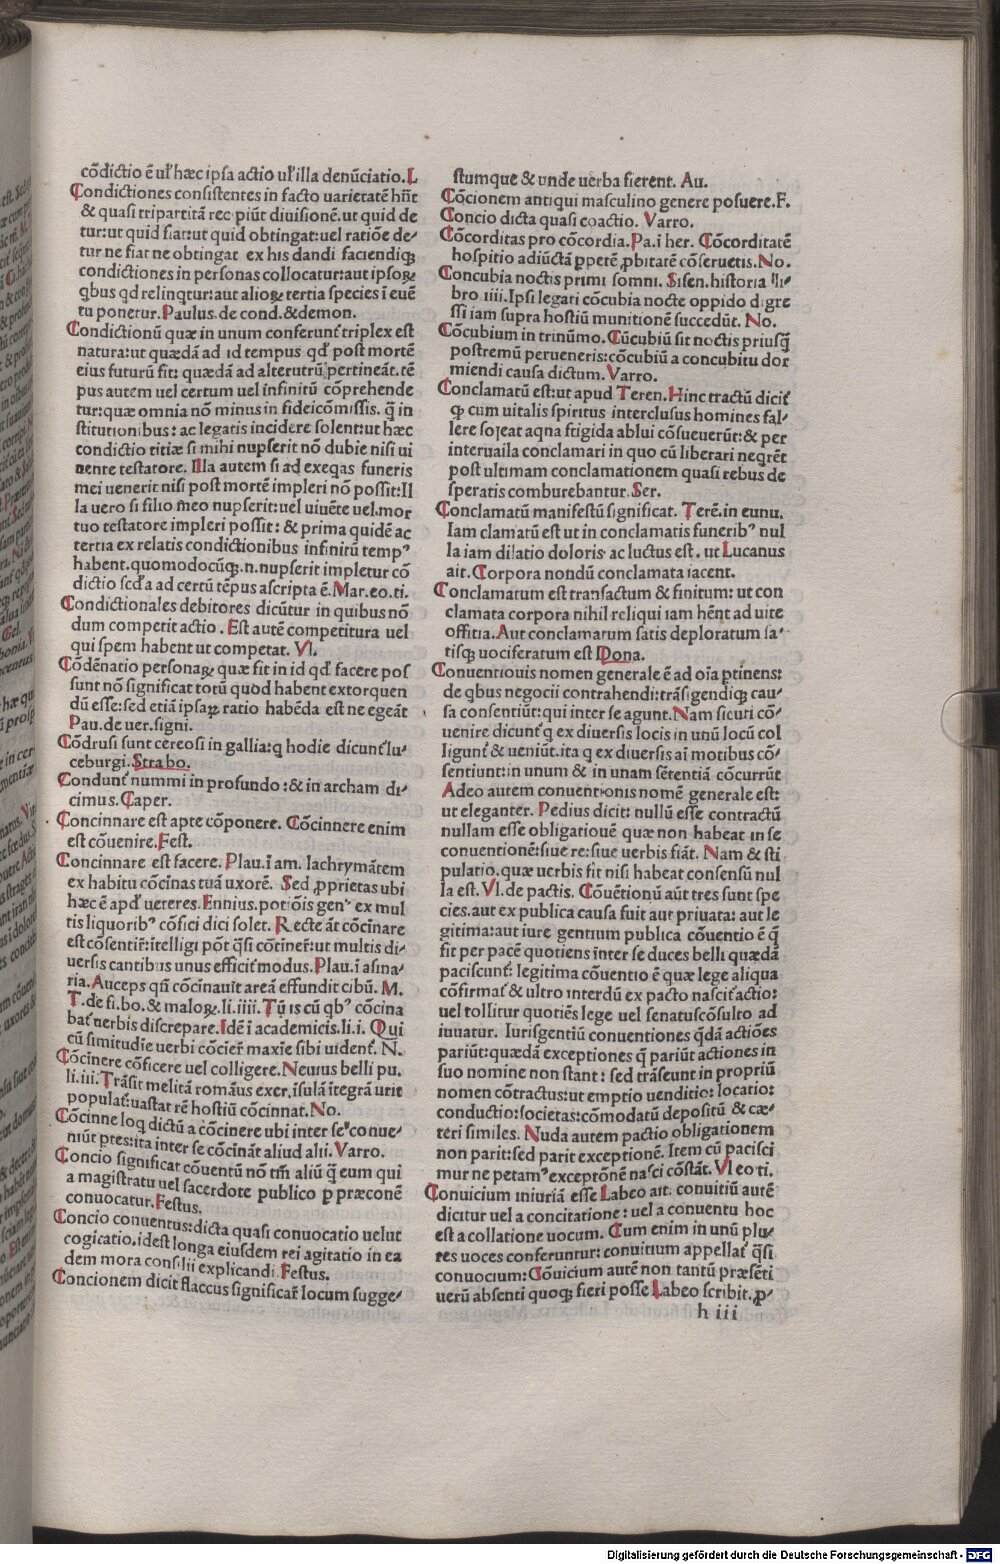 cōdictio ē ul̄ hæc ipſa actio ul̄ illa denūciatio. L
Condictiones conſiſtentes in facto uarietatē hn̄t
& quaſi tripartitā rec piūt diuiſionē. ut quid de
tur: ut quid fiat: ut quid obtingat: uel ratiōe de⸗
tur ne fiat ne obtingat ex his dandi faciendiqꝫ
condictiones in perſonas collocatur: aut ipſoꝝ
qbus qd relinqtur: aut alioꝝ tertia ſpecies ī euē
tu ponetur. Paulus. de cond. & demon.
Condictionū quæ in unum conferunt̄ triplex eſt
natura: ut quædā ad id tempus qd̄ poſt mortē
eius futurū fit: quædā ad alterutrū pertineāt. tē
pus autem uel certum uel infinitū cōprehende
tur: quæ omnia nō minus in fideicōmiſſis. q̄ in
ſtitutionibus: ac legatis incidere ſolent: ut hæc
condictio titiæ ſi mihi nupſerit nō dubie niſi ui
uente teſtatore. Illa autem ſi ad exeqas funeris
mei uenerit niſi poſt mortē impleri nō poſſit: Il
la uero ſi filio meo nupſerit: uel uiuēte uel. mor
tuo teſtatore impleri poſſit: & prima quidē ac
tertia ex relatis condictionibus infinitū tempꝰ
habent. quomodocūqꝫ. n. nupſerit impletur cō
dictio ſed̄a ad certū tēpus aſcripta ē. Mar. eo. ti.
Condictionales debitores dicūtur in quibus nō
dum competit actio. Eſt autē competitura uel
qui ſpem habent ut competat. Vl.
Cōdēnatio perſonaꝝ quæ fit in id qd̄ facere poſ
ſunt nō ſignificat totū quod habent extorquen
dū eſſe: ſed etiā ipſaꝝ ratio habēda eſt ne egeāt
Pau. de uer. ſigni.
Cōdruſi ſunt cereoſi in gallia: q hodie dicunt̄ lu⸗
ceburgi. Strabo.
Condunt̄ nummi in profundo: & in archam di⸗
cimus. Caper.
Concinnare eſt apte cōponere. Cōcinnere enim
eſt cōuenire. Feſt.
Concinnare eſt facere. Plau. ī am. lachrymātem
ex habitu cōcinas tuā uxorē. Sed ꝓprietas ubi
hæc ē apd̄ ueteres. Ennius. potiōis genꝰ ex mul
tis liquoribꝰ cōfici dici ſolet. Recte āt cōcinare
eſt cōſentir̄: ītelligi pōt q̄ſi cōtiner̄: ut multis di⸗
uerſis cantibus unus efficit̄ modus. Plau. ī aſina⸗
ria. Auceps qn̄ cōcinauit areā effundit cibū. M.
T. de fi. bo. & maloꝝ. li. iiii. Tn̄ is cū qbꝰ cōcina
bat̄ uerbis diſcrepare. Idē ī academicis. li. i. Qui
cū ſimitudīe uerbi cōcier̄ maxīe ſibi uident̄. N.
Cōcinere cōficere uel colligere. Neuius belli pu.
li. iii. Trāſit melitā romāus exer. iſulā ītegrā urit
populat̄: uaſtat rē hoſtiū cōcinnat. No.
Cōcinne loq dictū a cōcinere ubi inter ſe cōnue⸗
niūt ptes: ita inter ſe cōcināt aliud alii. Varro.
Concio ſignificat cōuentū nō tm̄ aliū q̄ eum qui
a magiſtratu uel ſacerdote publico ꝑ præconē
conuocatur. Feſtus.
Concio conuentus: dicta quaſi conuocatio uelut
cogicatio. ideſt longa eiuſdem rei agitatio in ea
dem mora conſilii explicandi. Feſtus.
Concionem dicit flaccus ſignificar̄ locum ſugge⸗
ſtumque & unde uerba fierent. Au.
Cōcionem antiqui maſculino genere poſuere. F.
Concio dicta quaſi coactio. Varro.
Cōcorditas pro cōcordia. Pa. ī her. Cōcorditatē
hoſpitio adiūctā ꝑpetē ꝓbitatē cōſeruetis. No.
Concubia noctis primi ſomni. Siſen. hiſtoria⁊ li⸗
bro iiii. Ipſi legati cōcubia nocte oppido digre
ſſi iam ſupra hoſtiū munitionē ſuccedūt. No.
Cōcubium in trinūmo. Cūcubiū ſit noctis priuſq̄
poſtremū perueneris: cōcubiū a concubitu dor
miendi cauſa dictum. Varro.
Conclamatū eſt: ut apud Teren. Hinc tractū dicit̄
ꝙ cum uitalis ſpiritus intercluſus homines fal⸗
lere ſoleat aqna frigida ablui cōſueuerūt: & per
interualla conclamari in quo cū liberari neqrēt
poſt ultimam conclamationem quaſi rebus de
ſperatis comburebantur. Ser.
Conclamatū manifeſtū ſignificat. Terē. in eunu.
Iam clamatū eſt ut in conclamatis funeribꝰ nul
la iam dilatio doloris ac luctus eſt. ut Lucanus
ait. Corpora nondū conclamata iacent.
Conclamatum eſt tranſactum & finitum: ut con
clamata corpora nihil reliqui iam hēnt ad uite
offitia. Aut conclamarum ſatis deploratum ſa⸗
tiſqꝫ uociferatum eſt Dona.
Conuentiouis nomen generale ē ad oīa ꝑtinens:
de qbus negocii contrahendi: trāſigendiqꝫ cau⸗
ſa conſentiūt: qui inter ſe agunt. Nam ſicuti cō⸗
uenire dicunt̄ q ex diuerſis locis in unū locū col
ligunt̄ & ueniūt. ita q ex diuerſis ai motibus cō⸗
ſentiunt: in unum & in unam ſētentiā cōcurrūt
Adeo autem conuentionis nomē generale eſt:
ut eleganter. Pedius dicit: nullū eſſe contractū
nullam eſſe obligatiouē quæ non habeat in ſe
conuentionē: ſiue re: ſiue uerbis fiāt. Nam & ſti
pulatio. quæ uerbis fit niſi habeat conſenſū nul
la eſt. Vl. de pactis. Cōuētionū aūt tres ſunt ſpe
cies. aut ex publica cauſa fuit aut priuata: aut le
gitima: aut iure gentium publica cōuentio ē q̄
fit per pacē quotiens inter ſe duces belli quædā
paciſcunt̄: legitima cōuentio ē quæ lege aliqua
cōfirmat̄ & ultro interdū ex pacto naſcit̄ actio:
uel tollitur quotiēs lege uel ſenatuſcōſulto ad
iuuatur. Iuriſgentiū conuentiones q̄dā actiōes
pariūt: quædā exceptiones q̄ pariūt actiones in
ſuo nomine non ſtant: ſed trāſeunt in propriū
nomen cōtractus: ut emptio uenditio: locatio:
conductio: ſocietas: cōmodatū depoſitū & cæ⸗
teri ſimiles. Nuda autem pactio obligationem
non parit: ſed parit exceptionē. Item cū paciſci
mur ne petamꝰ exceptōnē naſci cōſtāt. Vl eo ti.
Conuicium iniuriā eſſe Labeo ait. conuitiū autē
dicitur uel a concitatione: uel a conuentu hoc
eſt a collatione uocum. Cum enim in unū plu⸗
res uoces conferuntur: conuitium appellat̄ q̄ſi
conuocium: Cōuicium autē non tantū præſēti
uerū abſenti quoqꝫ fieri poſſe Labeo ſcribit. ꝓ⸗
h iii
Digitalisierung gefördert durch die Deutsche Forschungsgemeinschaft - DFG